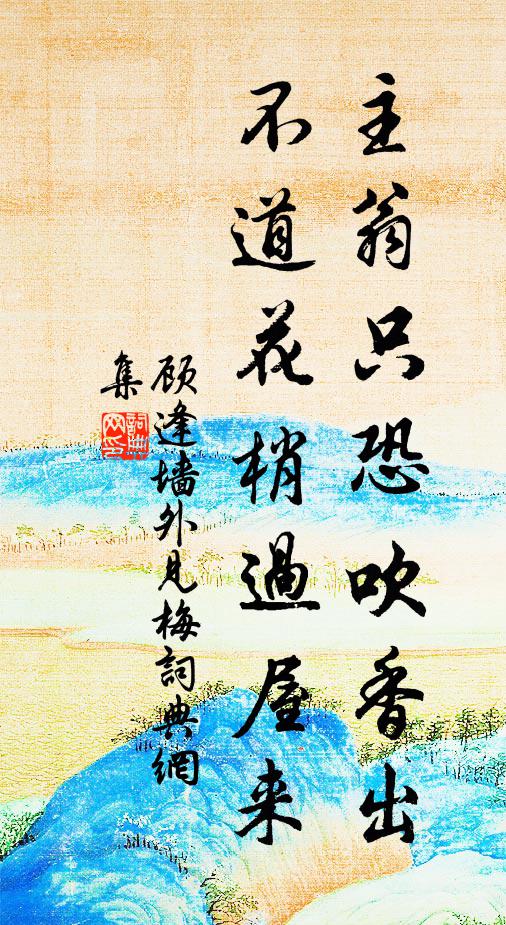 主翁只恐吹香出
不道花梢過屋来
顾逢墙外見梅詞典網
集
詞典
网印